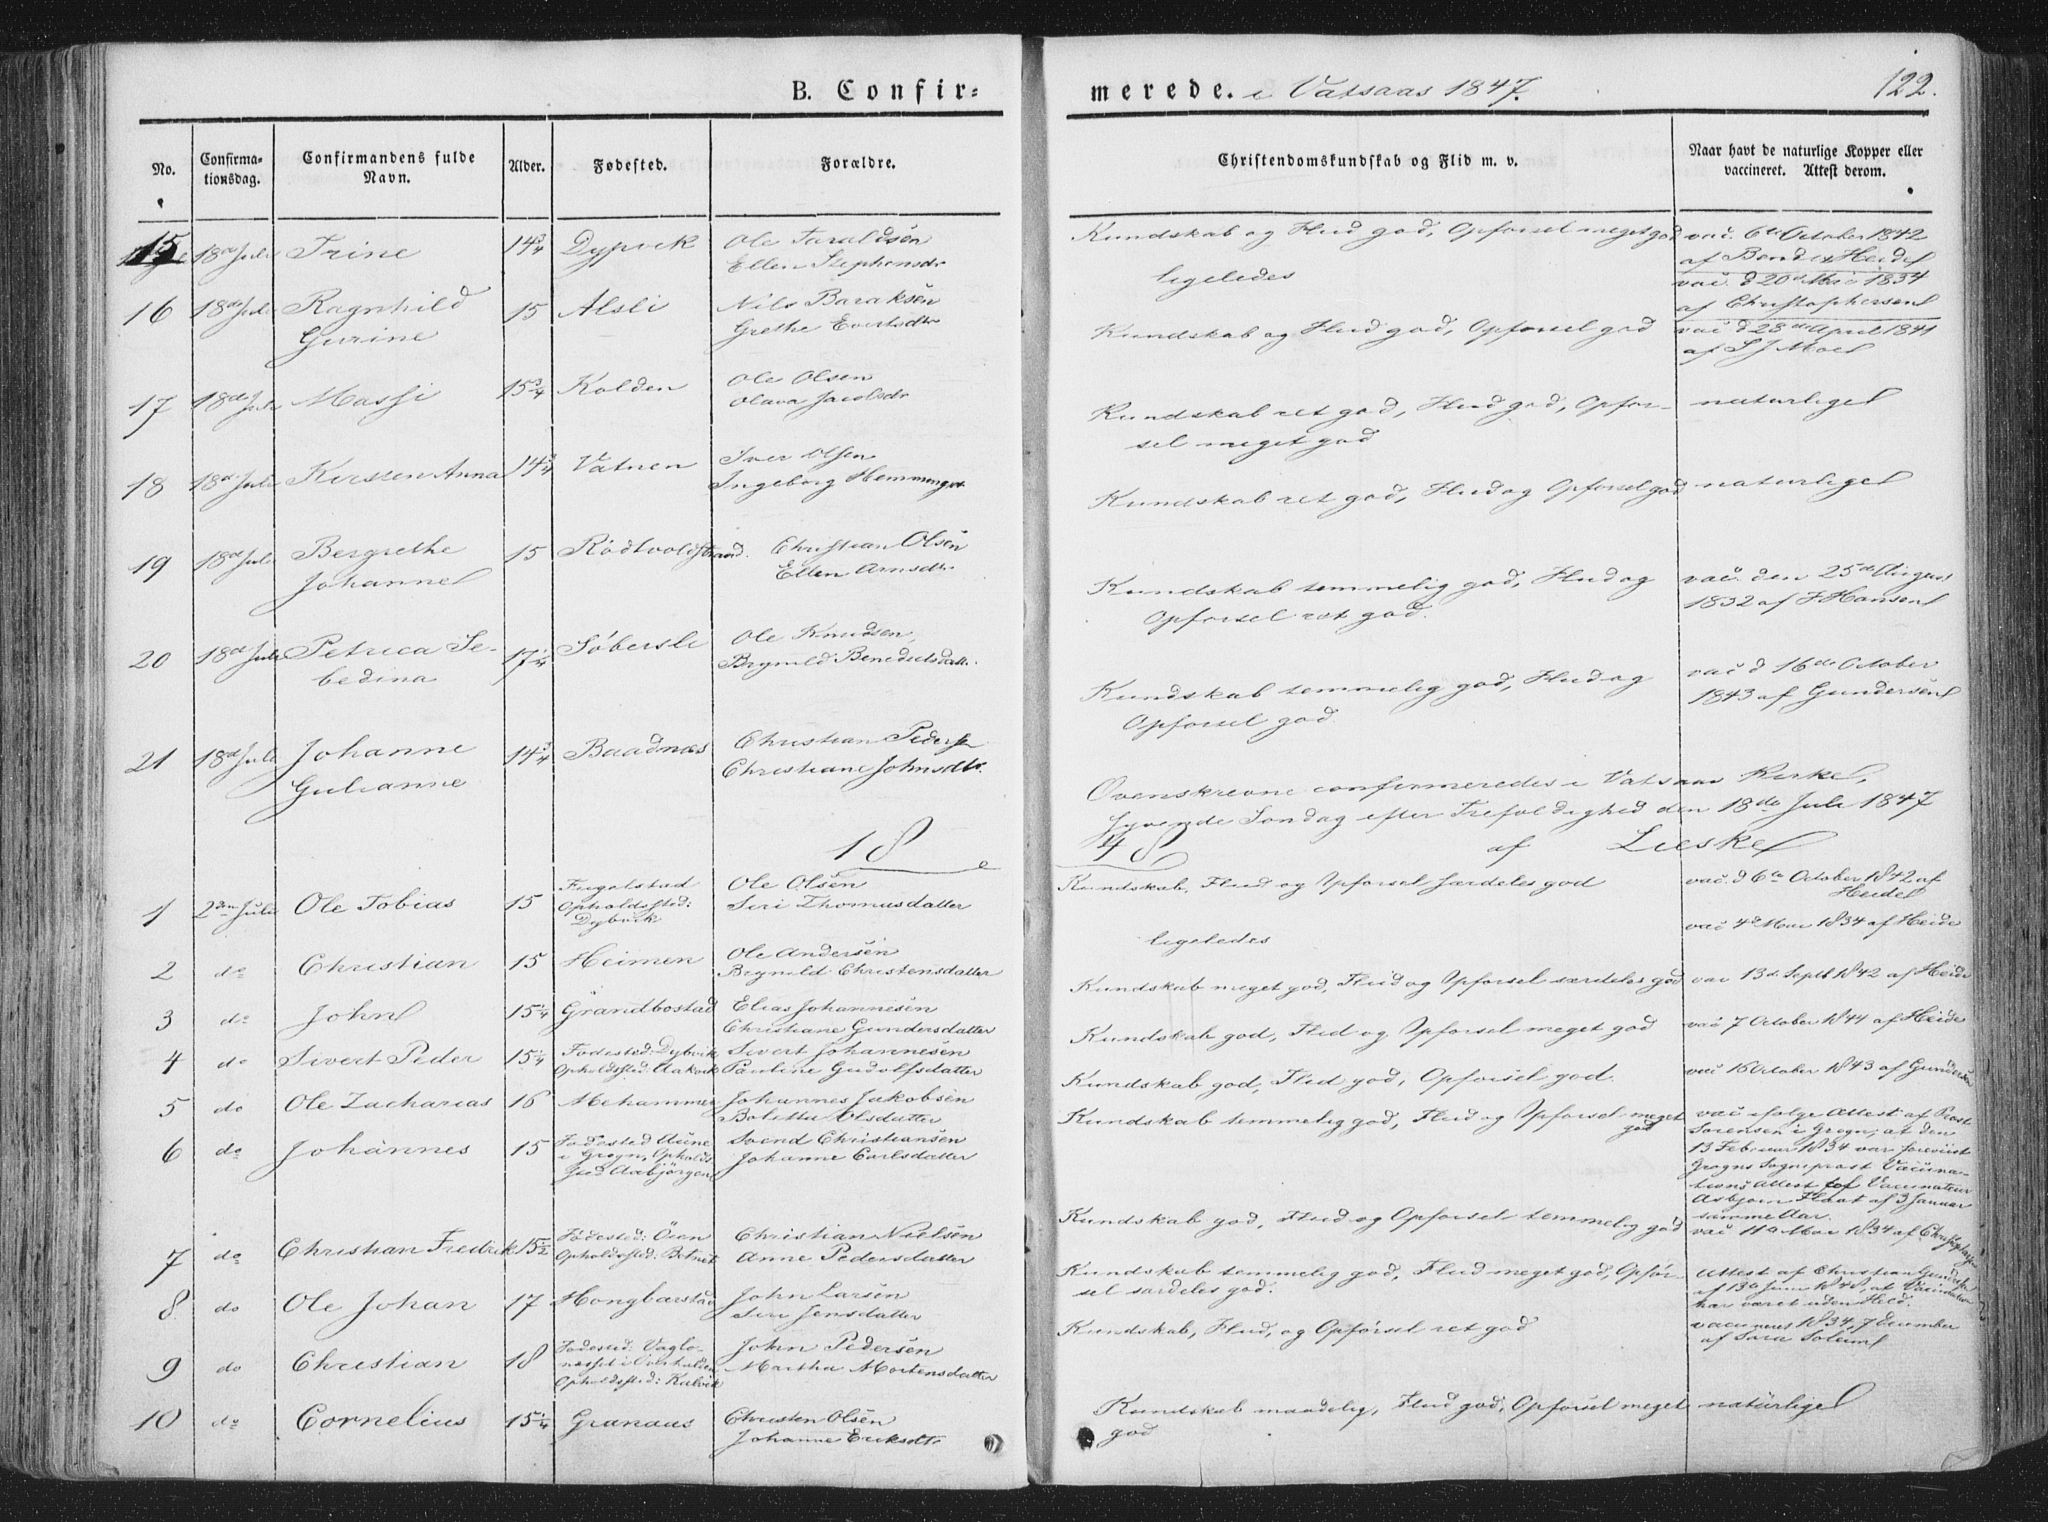 B. Confir=
merede. i Vatsaas 1847.
122.
No.
Confirma-
tionsdag.
Confirmandens fulde
Navn.
Alder.
Fødested.
Forældre.
Christendomskundskab og Flid m. v.
Naar havt de naturlige Kopper eller
vaccineret. Attest derom.
15 18de Juli Trine 14¾ Dypvik Ole Taraldsen
Ellen Stephensdr
16 18de Juli Ragnhild 15 Alsli Nils Baraksen
Gurine Grethe Evertsdr
17 18de Juli Massi 15¾ Kolden Ole Olsen
Olava Jacobsdr
18 18de Juli Kirsten Anna 14¾ Vatnen Iver Olsen
Ingeborg Hemmingsdr
19 18de Juli Bergrethe 15 Rödtvoldstrand. Christian Olsen
Johanne Ellen Arnsdr.
20 18de Juli Petrica Se- 17¼ Söbersli Ole Knudsen,
bedina Brynild Benedictsdatt.
21 18de Juli Johanne 14¾ Baadnæs Christian Peders
Gulianne Christiane Johnsdtr.
18
1 2den Juli Ole Tobias 15 Fugelstad Ole Olsen
Opholdssted: Siri Thomasdatter
Dybvik
2 do Christian 15 Heimen Ole Andersen
Brynild Christensdatter
3 do John 15¼ Grandbostad Elias Johannesen
Christiane Gundersdatter
4 do Sivert Peder 15¼ Födested: Dybvik Sivert Johannesen
Opholdssted: Aakvik Pauline Gudolfsdatter
5 do Ole Zacharias 16 Mehammer Johannes Jakobsen
Boletta Olsdatter
6 do Johannes 15 Födested Aune Svend Christiansen
i Grogn, Opholds Johanne Carlsdatter
sted Aabjörgen
7 do Christian Fredrik 15½ Födested: Öien Christian Nielsen
Opholdssted: Botnet Anne Pedersdatter
8 do Ole Johan 17 Hongbarstad John Larsen
Siri Jensdatter
9 do Christian 18 Födested: Vaglo- John Pedersen
næsset i Overhalden Martha Mortensdatter
Opholdssted: Kalvik
10 do Cornelius 15¼ Granaas Christen Olsen
Johanne Eriksdtr
Kundskab og Flid god, Opforsel meget god vac. 6te October 1842
af Bendix Heide
ligeledes vac. d 20de Mai 1834
af Christophersen
Kundskab og Flid god, Opforsel god vac d 28de April 1841
af S J Moe
Kundskab ret god, Flid god, Opfor- naturlige
sel meget god
Kundskab ret god, Flid og Opforsel god naturlige
Kundskab temmelig god, Flid og vac. den 25de August
Opforsel ret god. 1832 af F Hansen
Kundskab temmelig god, Flid og vac d 16de October
Opforsel god 1843 af Gundersen
Ovenskrevne confirmeredes i Vatsaas Kirke,
syvende Sondag efter Trefoldighed den 18de Juli 1847
48 af Lieske
Kundskab, Flid og Opforsel særdeles god vac. d 6te October 1842 af
Heide
ligeledes vac 4de Mai 1834 af Heide
Kundskab meget god, Flid og Opforsel særdeles god vac 13de Septb 1842 af Heide
Kundskab god, Flid og Opforsel meget god vac 7 October 1844 af Heide
Kundskab god, Flid god, Opforsel god vac 16 October 1843 af Gundersen
Kundskab temmelig god, Flid og Opforsel meget vac ifolge Attest af Prost
god Sorensen i Grogn, at den
13 Februar 1834 var foreviist
Grogns Sogneprest Vaccina-
tions Attest af Vaccinateur
Asbjorn Float af 3 Januar
samme Aar.
Kundskab god, Flid og Opforsel temmelig god vac 11te Mai 1834 af Christophersen
Kundskab temmelig god, Flid meget god, Opför- Attest af Christian Gundersen
sel særdeles god. af 13de Juni 1848, at Vaccination
har været uden Held.
Kundskab, Flid, og Opförsel ret god vaccineret 1834, 7 December
af Sara Solem
Kundskab maadelig, Flid god, Opförsel meget naturlige
god